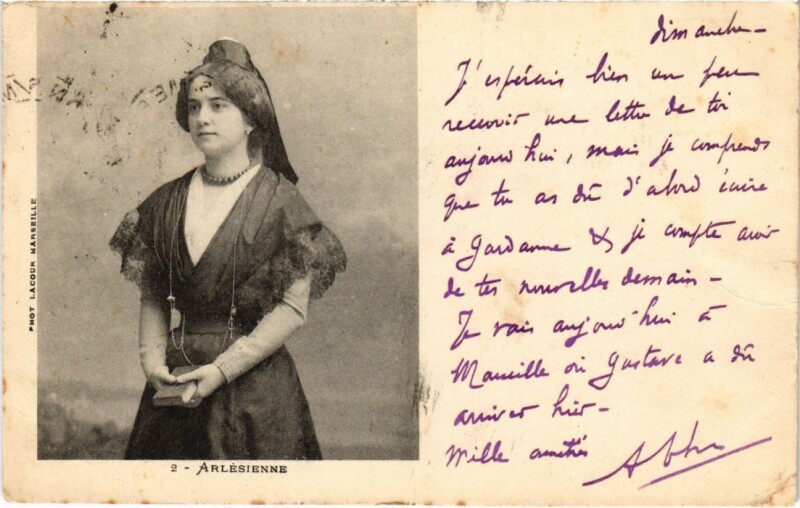 PHOT LACOUR MARSEILLE
2 - ARLÉSIENNE
dimanche -
J'espérais bien un peu
recevoir une lettre de toi
aujourd'hui, mais je comprends
que tu as dû d'abord écrire
à Gardanne & je compte avoir
de tes nouvelles demain -
Je vais aujourd'hui à
Marseille où Gustave a dû
arriver hier -
Mille amitiés